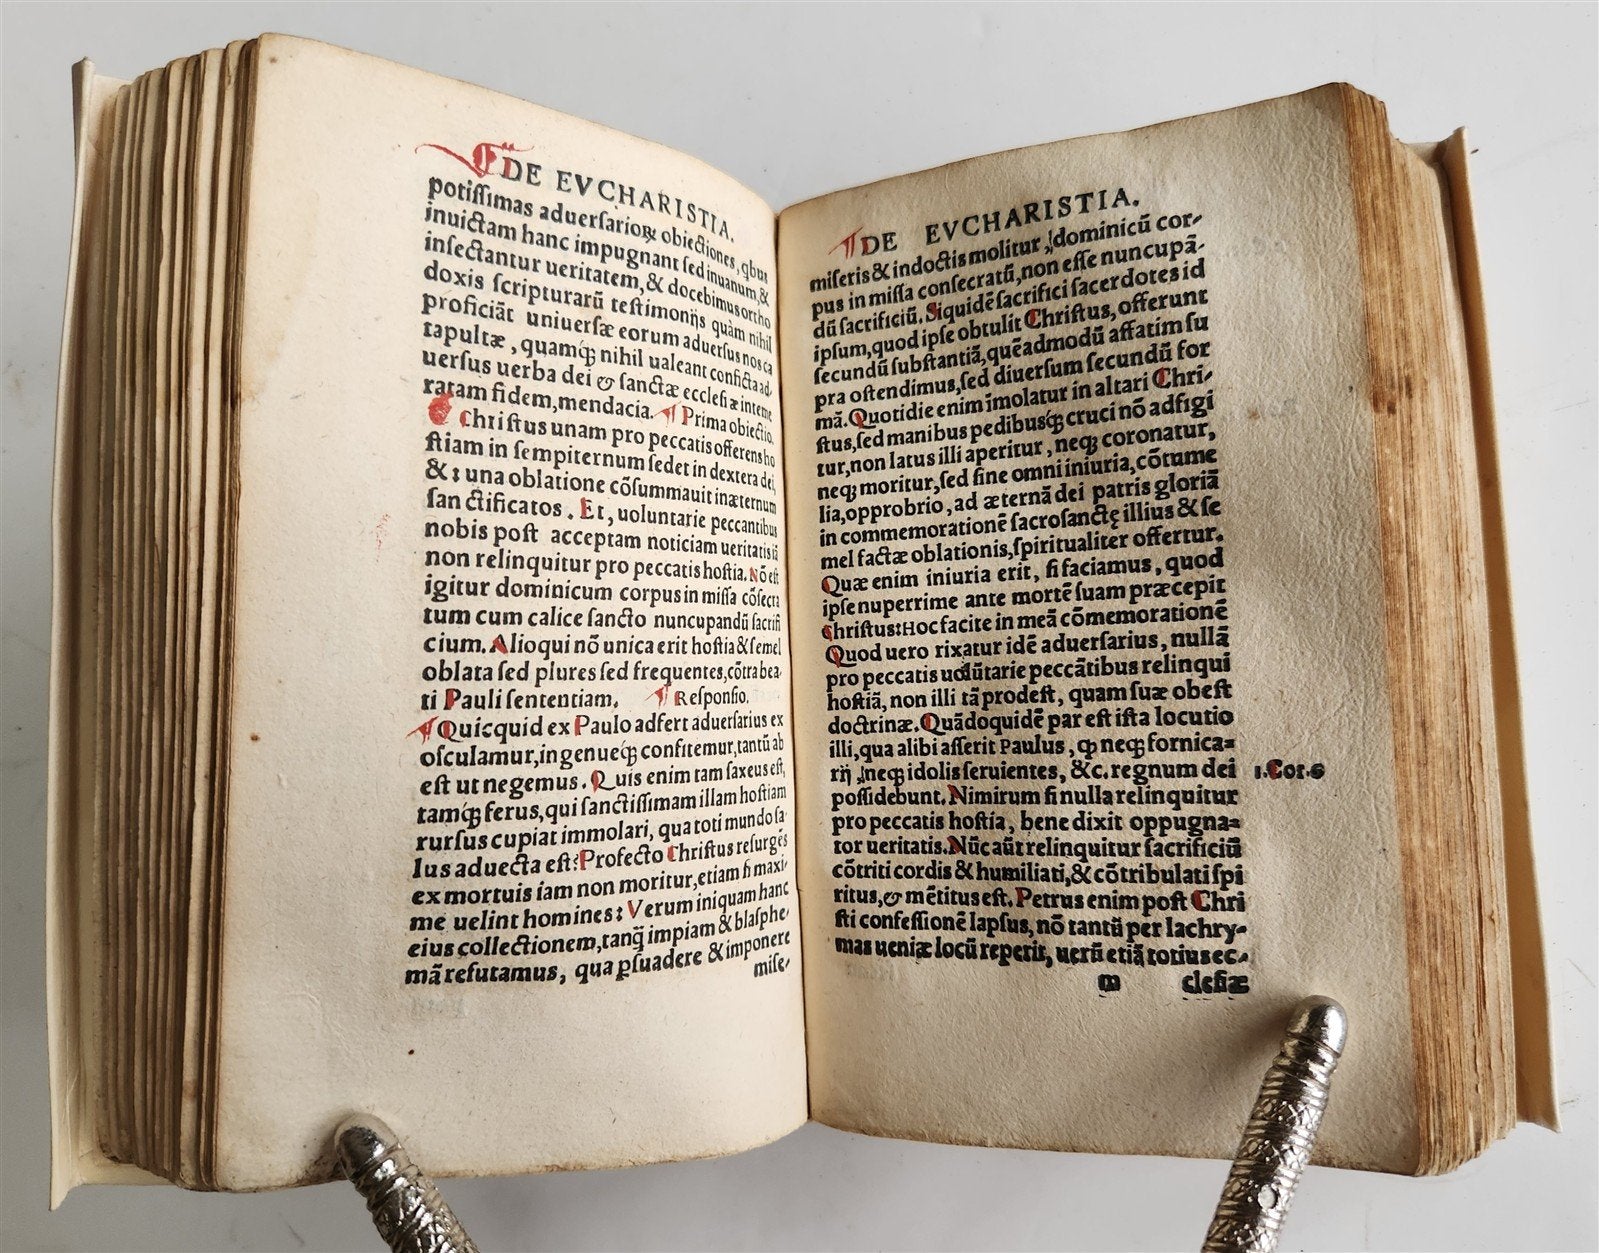 DE EVCHARISTIA.
potiſſimas aduerſarioꝝ obiectiones, qbus
inuictam hanc impugnant ſed inuanum, &
inſectantur ueritatem, & docebimus ortho
doxis ſcripturarū teſtimonijs quàm nihil
proficiāt uniuerſæ eorum aduerſus nos ca
tapultæ, quamq; nihil ualeant conficta ad
uerſus uerba dei & ſanctæ eccleſiæ inteme
ratam fidem, mendacia. ¶ Prima obiectio.
Chriſtus unam pro peccatis offerens ho
ſtiam in ſempiternum ſedet in dextera dei,
&: una oblatione cōſummauit inæternum
ſanctificatos. Et, uoluntarie peccantibus
nobis poſt acceptam noticiam ueritatis iā
non relinquitur pro peccatis hoſtia. Nō eſt
igitur dominicum corpus in miſſa cōſecra
tum cum calice ſancto nuncupandū ſacrifi
cium. Alioqui nō unica erit hoſtia & ſemel
oblata ſed plures ſed frequentes, cōtra bea-
ti Pauli ſententiam. ¶ Reſponſio.
¶ Quicquid ex Paulo adfert aduerſarius ex
oſculamur, ingenueq; confitemur, tantū ab
eſt ut negemus. Quis enim tam ſaxeus eſt,
tamq; ferus, qui ſanctiſſimam illam hoſtiam
rurſus cupiat immolari, qua toti mundo ſa-
lus aduecta eſt? Profecto Chriſtus reſurgēs
ex mortuis iam non moritur, etiam ſi maxi-
me uelint homines: Verum iniquam hanc
eius collectionem, tanq̄ impiam & blaſphe-
mā refutamus, qua ꝑſuadere & imponere
miſe-
¶ DE EVCHARISTIA.
miſeris & indoctis molitur, dominicū cor-
pus in miſſa conſecratū, non eſſe nuncupā-
dū ſacrificiū. Siquidē ſacrifici ſacerdotes id
ipſum, quod ipſe obtulit Chriſtus, offerunt
ſecundū ſubſtantiā, quēadmodū affatim ſu
pra oſtendimus, ſed diuerſum ſecundū for
mā. Quotidie enim īmolatur in altari Chri-
ſtus, ſed manibus pedibusq; cruci nō adfigi
tur, non latus illi aperitur, neq; coronatur,
neq; moritur, ſed ſine omni iniuria, cōtume
lia, opprobrio, ad æternā dei patris gloriā
in commemorationē ſacroſanctę illius & ſe
mel factæ oblationis, ſpiritualiter offertur.
Quæ enim iniuria erit, ſi faciamus, quod
ipſe nuperrime ante mortē ſuam præcepit
Chriſtus: Hoc facite in meā cōmemorationē
Quod uero rixatur idē aduerſarius, nullā
pro peccatis uolūtarie peccātibus relinqui
hoſtiā, non illi tā prodeſt, quam ſuæ obeſt
doctrinæ. Quādoquidē par eſt iſta locutio
illi, qua alibi aſſerit Paulus, ꝙ neq; fornica=
rij, neq; idolis ſeruientes, &c. regnum dei
1.Cor.6
poſſidebunt. Nimirum ſi nulla relinquitur
pro peccatis hoſtia, bene dixit oppugna=
tor ueritatis. Nūc aūt relinquitur ſacrificiū
cōtriti cordis & humiliati, & cōtribulati ſpi
ritus, & mētitus eſt. Petrus enim poſt Chri
ſti confeſſionē lapſus, nō tantū per lachry-
mas ueniæ locū reperit, uerū etiā totius ec-
m cleſiæ